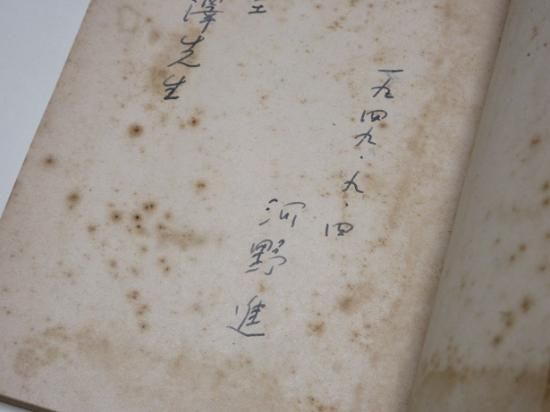 一九四九・九・四
河野進
澤先生